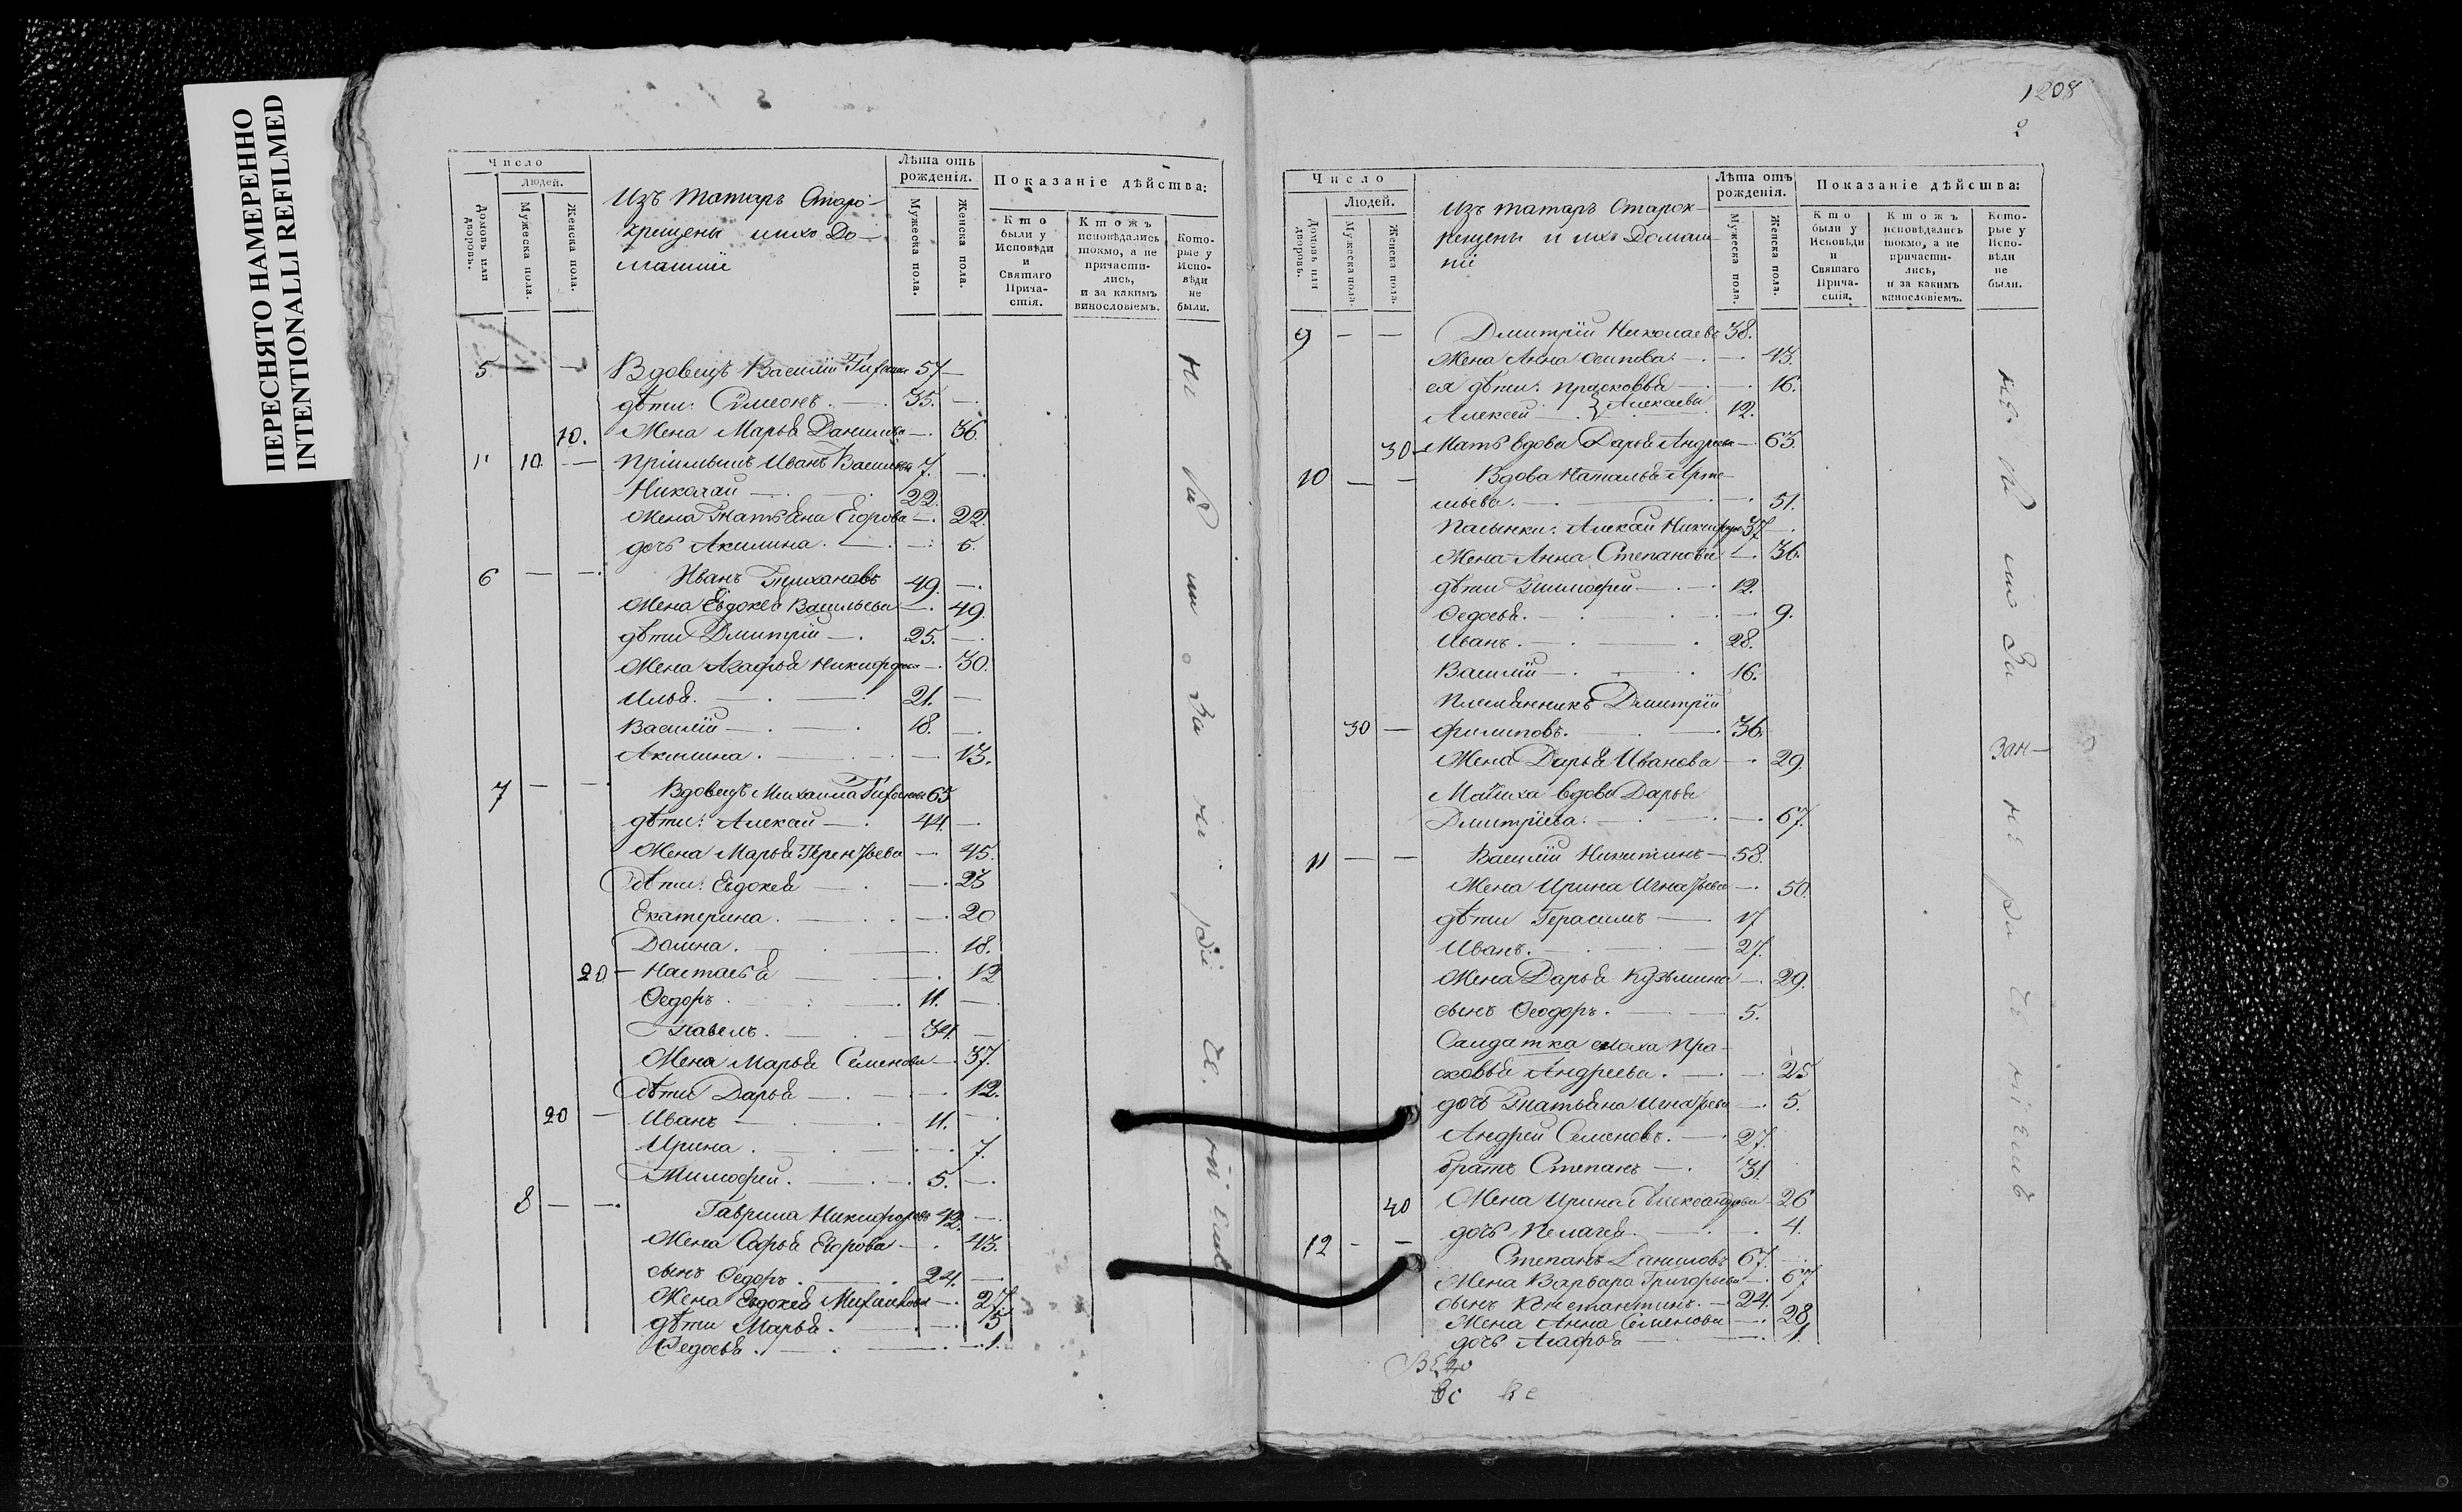 ПЕРЕСНЯТО НАМЕРЕННО
INTENTIONALLI REFILMED
Число
Людей.
Домовъ или дворовъ.
Мужеска пола.
Женска пола.
Изъ татаръ Старо-
крещены и ихъ До-
машніи
Лѣта отъ рожденія.
Мужеска пола.
Женска пола.
Показаніе дѣйства:
Кто были у Исповѣди и Святаго Причастія.
Ктожъ исповѣдались токмо, а не причастились, и за какимъ винословіемъ.
Которые у Исповѣди не были.
5 — — Вдовецъ Василій 57 —
дѣти: Сѵмеонъ. — 35. —
10. Жена Марья Данилова — 36.
11 10. — Пріимышъ Иванъ Васильевъ 7. —
Николай — 22.
Жена Татьяна Егорова — 22.
дочь Акилина. — 5.
6 — — Иванъ 49. —
Жена Евдокея Васильева — 49.
дѣти Дмитрій — 25. —
Жена Агафья Никифорова — 30.
Илья. — 21. —
Василій — 18. —
Акилина. — 13.
7 — — Вдовецъ Михаила 65
дѣти: Алексей — 44. —
Жена Марья Терентьева — 45.
Дѣти: Евдокея — 23
Екатерина. — 20
Домна. — 18.
20 — Настасья — 12
Ѳедоръ. — 11. —
Павелъ. — 34. —
Жена Марья Семенова — 37.
Дѣти Дарья — 12.
20 — Иванъ — 11. —
Ирина. — 7.
Тимофей. — 5. —
8 — — Гаврила Никифоровъ 42. —
Жена Софья Егорова — 43.
сынъ Ѳедоръ. — 24. —
Жена Евдокея Михайлова — 27.
дѣти Марья. — 5
Ѳедосья. — 1.
1208
2
Число
Людей.
Домовъ или дворовъ.
Мужеска пола.
Женска пола.
Изъ татаръ Старок-
рещены и ихъ Домаш-
ніе
Лѣта отъ рожденія.
Мужеска пола.
Женска пола.
Показаніе дѣйства:
Кто были у Исповѣди и Святаго Причастія.
Ктожъ исповѣдались токмо, а не причастились, и за какимъ винословіемъ.
Которые у Исповѣди не были.
9 — — Дмитрій Николаевъ 38.
Жена Анна Осипова. — 43.
ея дѣти: Прасковья — 16.
Алексей } Алексеевы 12.
30 — Мать вдова Дарья Андреева — 63.
10 — — Вдова Наталья Арте-
мьева. — 51.
Пасынки: Алексей Никифоровъ 37 —
Жена Анна Степанова — 36.
дѣти Тимофей — 12.
Ѳедосья. — 9.
Иванъ. — 28.
Василій — 16.
Племянникъ Дмитрій
30 — Филиповъ. — 36.
Жена Дарья Иванова — 29.
Мачиха вдова Дарья
Дмитріева. — 67.
11 — — Василій Никитинъ — 58.
Жена Ирина Игнатьева — 50.
дѣти Герасимъ — 17
Иванъ. — 27.
Жена Дарья Кузьмина — 29.
сынъ Ѳеодоръ. — 5.
Салдатка сноха Пра-
сковья Андреева. — 25
дочь Татьяна Игнатьева — 5.
Андрей Семеновъ. — 27.
братъ Степанъ — 31.
40 Жена Ирина Александрова — 26
дочь Пелагея — 4.
12 — — Степанъ Даниловъ 67. —
Жена Варвара Григорьева — 67
сынъ Константинъ. — 24.
Жена Анна Семенова — 28
дочь Агафья — 1.